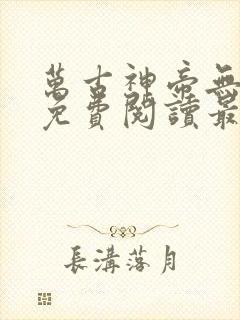 萬古神帝無
免費閱讀最
長溝落月